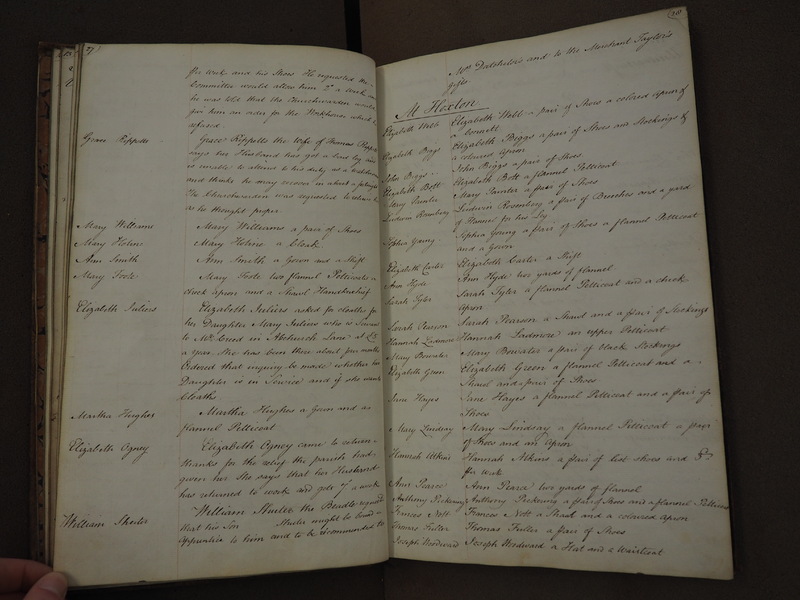 for work and his Shoes He requested the
Committee would allow him a week and
he was told that the Churchwarden would
give him an order for the Workhouse which he
refused
Grace Rippetts
Grace Rippetts the wife of Thomas Rippetts
says her Husband has got a bad leg and
is unable to attend to his duty as a watchman
and thinks he may recover in about a fortnight
The Churchwarden was requested to relieve him
as he thought proper
Mary Williams Mary Williams a pair of Shoes
Mary Holme Mary Holme a Cloak
Ann Smith Ann Smith a Gown and a Shift
Mary Foote Mary Foote two flannel Petticoats a
check apron and a Shawl Handkerchief
Elizabeth Juliers Elizabeth Juliers asked for cloaths for
her Daughter Mary Juliers who is Servant
to Mr Creed in Abchurch Lane at
a year. She has been there about four months
Ordered that inquiry be made whether her
Daughter is in Service and if she wants
Cloaths
Martha Hughes Martha Hughes a Gown and a
flannel Petticoat
Elizabeth Ogney Elizabeth Ogney came to return
thanks for the relief the parish had
given her She says that her Husband
has returned to work and gets a week
William Shuter William Shuter the Beadle requested
that his Son Shuter might be bound
Apprentice to him and to be recommended to
18
Mrs Datchelor's and to the Merchant Taylor's
gifts.
At Hoxton
Elizabeth Webb Elizabeth Webb a pair of Shoes a colored apron &
a bonnett
Elizabeth Biggs Elizabeth Biggs a pair of Shoes and Stockings &
a coloured apron
John Biggs John Biggs a pair of Shoes
Elizabeth Bott Elizabeth Bott a flannel Petticoat
Mary Painter Mary Painter a pair of Shoes
Ludwin Rosenberg Ludwin Rosenberg a pair of Breeches and a yard
of flannel for his Leg
Sophia Young Sophia Young a pair of Shoes a flannel Petticoat
and a Gown
Elizabeth Carter Elizabeth Carter a Shift
Ann Hyde Ann Hyde two yards of flannel
Sarah Tyler Sarah Tyler a flannel Petticoat and a check
apron
Sarah Pearson Sarah Pearson a Shawl and a pair of Stockings
Hannah Ladmore Hannah Ladmore an upper Petticoat
Mary Bowater Mary Bowater a pair of black Stockings
Elizabeth Green Elizabeth Green a flannel Petticoat and a
Shawl and a pair of Shoes
Jane Hayes Jane Hayes a flannel Petticoat and a pair of
Shoes
Mary Lindsay Mary Lindsay a flannel Petticoat a pair
of Shoes and an Apron
Hannah Atkins Hannah Atkins a pair of list shoes and
for work
Ann Pearce Ann Pearce two yards of flannel
Anthony Pickering Anthony Pickering a pair of Shoes and a flannel Petticoat
Frances Nott Frances Nott a Shawl and a coloured apron
Thomas Fuller Thomas Fuller a pair of Shoes
Joseph Woodward Joseph Woodward a Hat and a Waistcoat